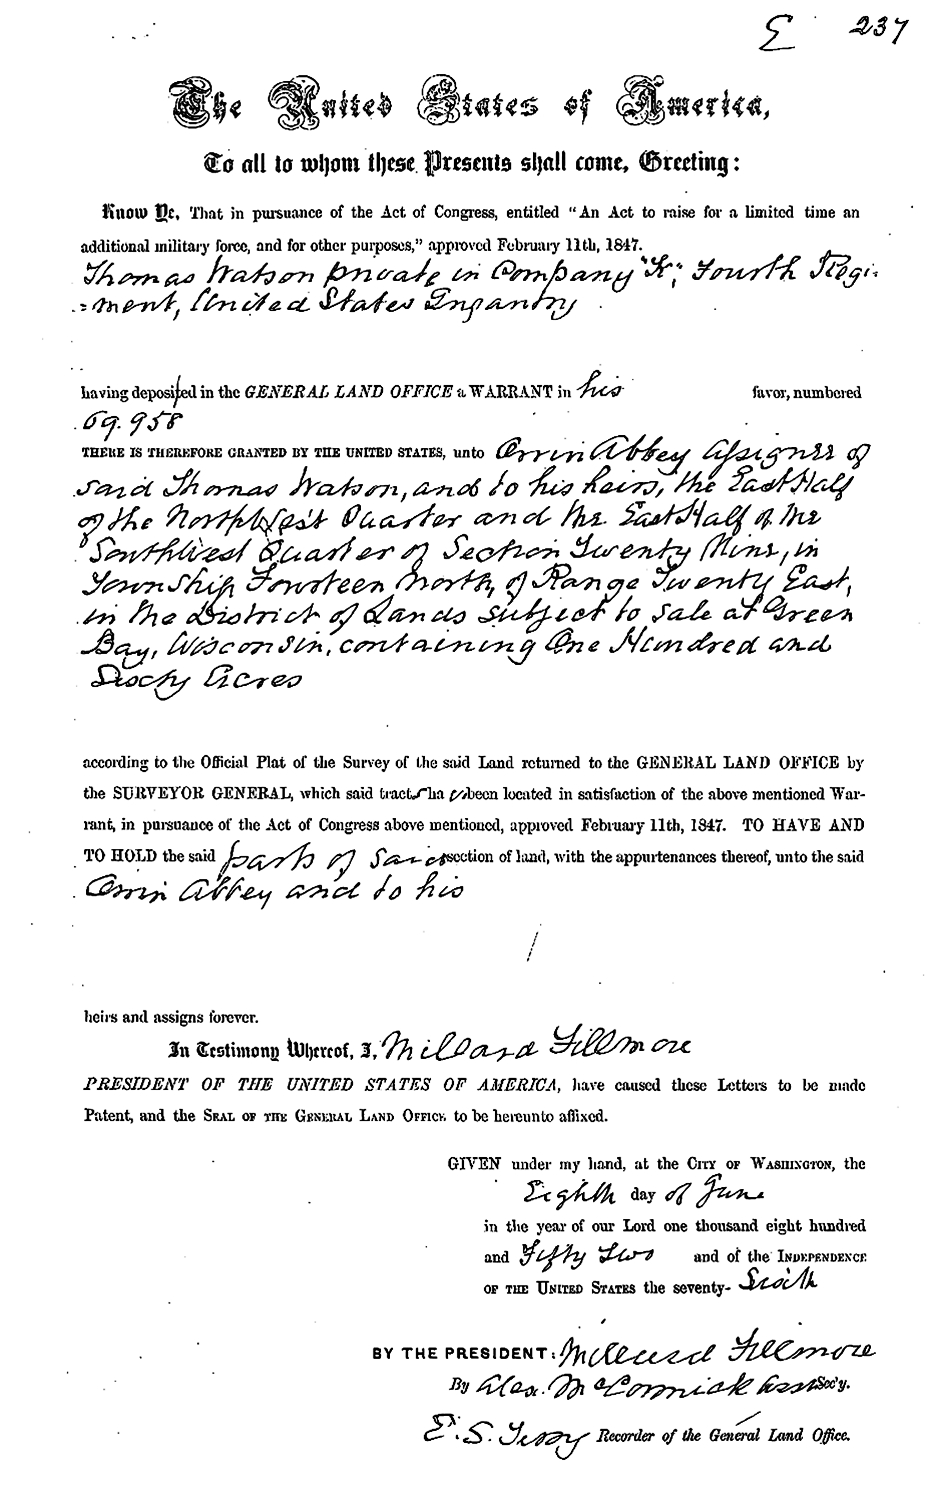 237
The United States of America,
To all to whom these Presents shall come, Greeting:
Know Ye, That in pursuance of the Act of Congress, entitled "An Act to raise for a limited time an
additional military force, and for other purposes," approved February 11th, 1847.
Thomas Watson private in Company "K", Fourth Regi-
-ment, United States Infantry
having deposited in the GENERAL LAND OFFICE a WARRANT in his favor, numbered
69.958
THERE IS THEREFORE GRANTED BY THE UNITED STATES, unto Orrin Abbey assignee of
said Thomas Watson, and to his heirs, the East Half
of the NorthWest Quarter and the East Half of the
SouthWest Quarter of Section Twenty Nine, in
Township Fourteen North, of Range Twenty East,
in the District of Lands subject to sale at Green
Bay, Wisconsin, containing One Hundred and
Sixty Acres
according to the Official Plat of the Survey of the said Land returned to the GENERAL LAND OFFICE by
the SURVEYOR GENERAL, which said tracts ha ve been located in satisfaction of the above mentioned War-
rant, in pursuance of the Act of Congress above mentioned, approved February 11th, 1847. TO HAVE AND
TO HOLD the said parts of said section of land, with the appurtenances thereof, unto the said
Orrin Abbey and to his
heirs and assigns forever.
In Testimony Whereof, I, Millard Fillmore
PRESIDENT OF THE UNITED STATES OF AMERICA, have caused these Letters to be made
Patent, and the SEAL OF THE GENERAL LAND OFFICE to be hereunto affixed.
GIVEN under my hand, at the CITY OF WASHINGTON, the
Eighth day of June
in the year of our Lord one thousand eight hundred
and Fifty Two and of the INDEPENDENCE
OF THE UNITED STATES the seventy-Sixth
BY THE PRESIDENT: Millard Fillmore
By Alex. McCormick Asst Sec'y.
E. S. Terry Recorder of the General Land Office.